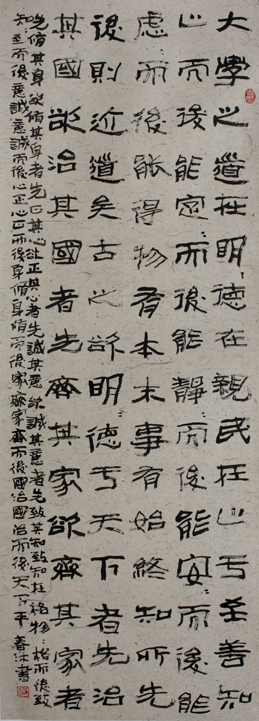 大學之道在明〻德在親民在止于至善知
止而後能定〻而後能靜〻而後能安〻而後能
慮〻而後能得物有本末事有始終知所先
後則近道矣古之欲明〻德于天下者先治
其國欲治其國者先齊其家欲齊其家者
先脩其身欲脩其身者先正其心欲正其心者先誠其意欲誠其意者先致其知致知在格物〻格而後致
知〻至而後意誠意誠而後心正心正而後身脩身脩而後家齊家齊而後國治國治而後天下平 春沐書